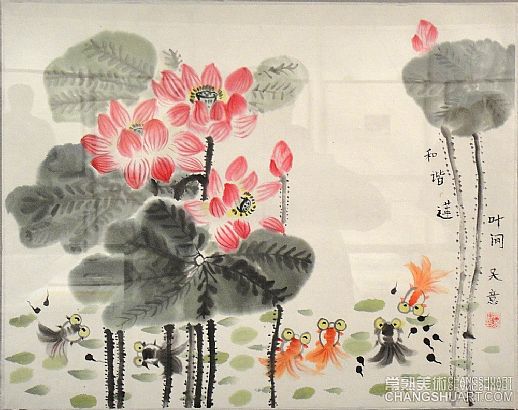 和谐莲
叶间天意
常熟美術 CHANGSHUART
CHANGSHUART.COM